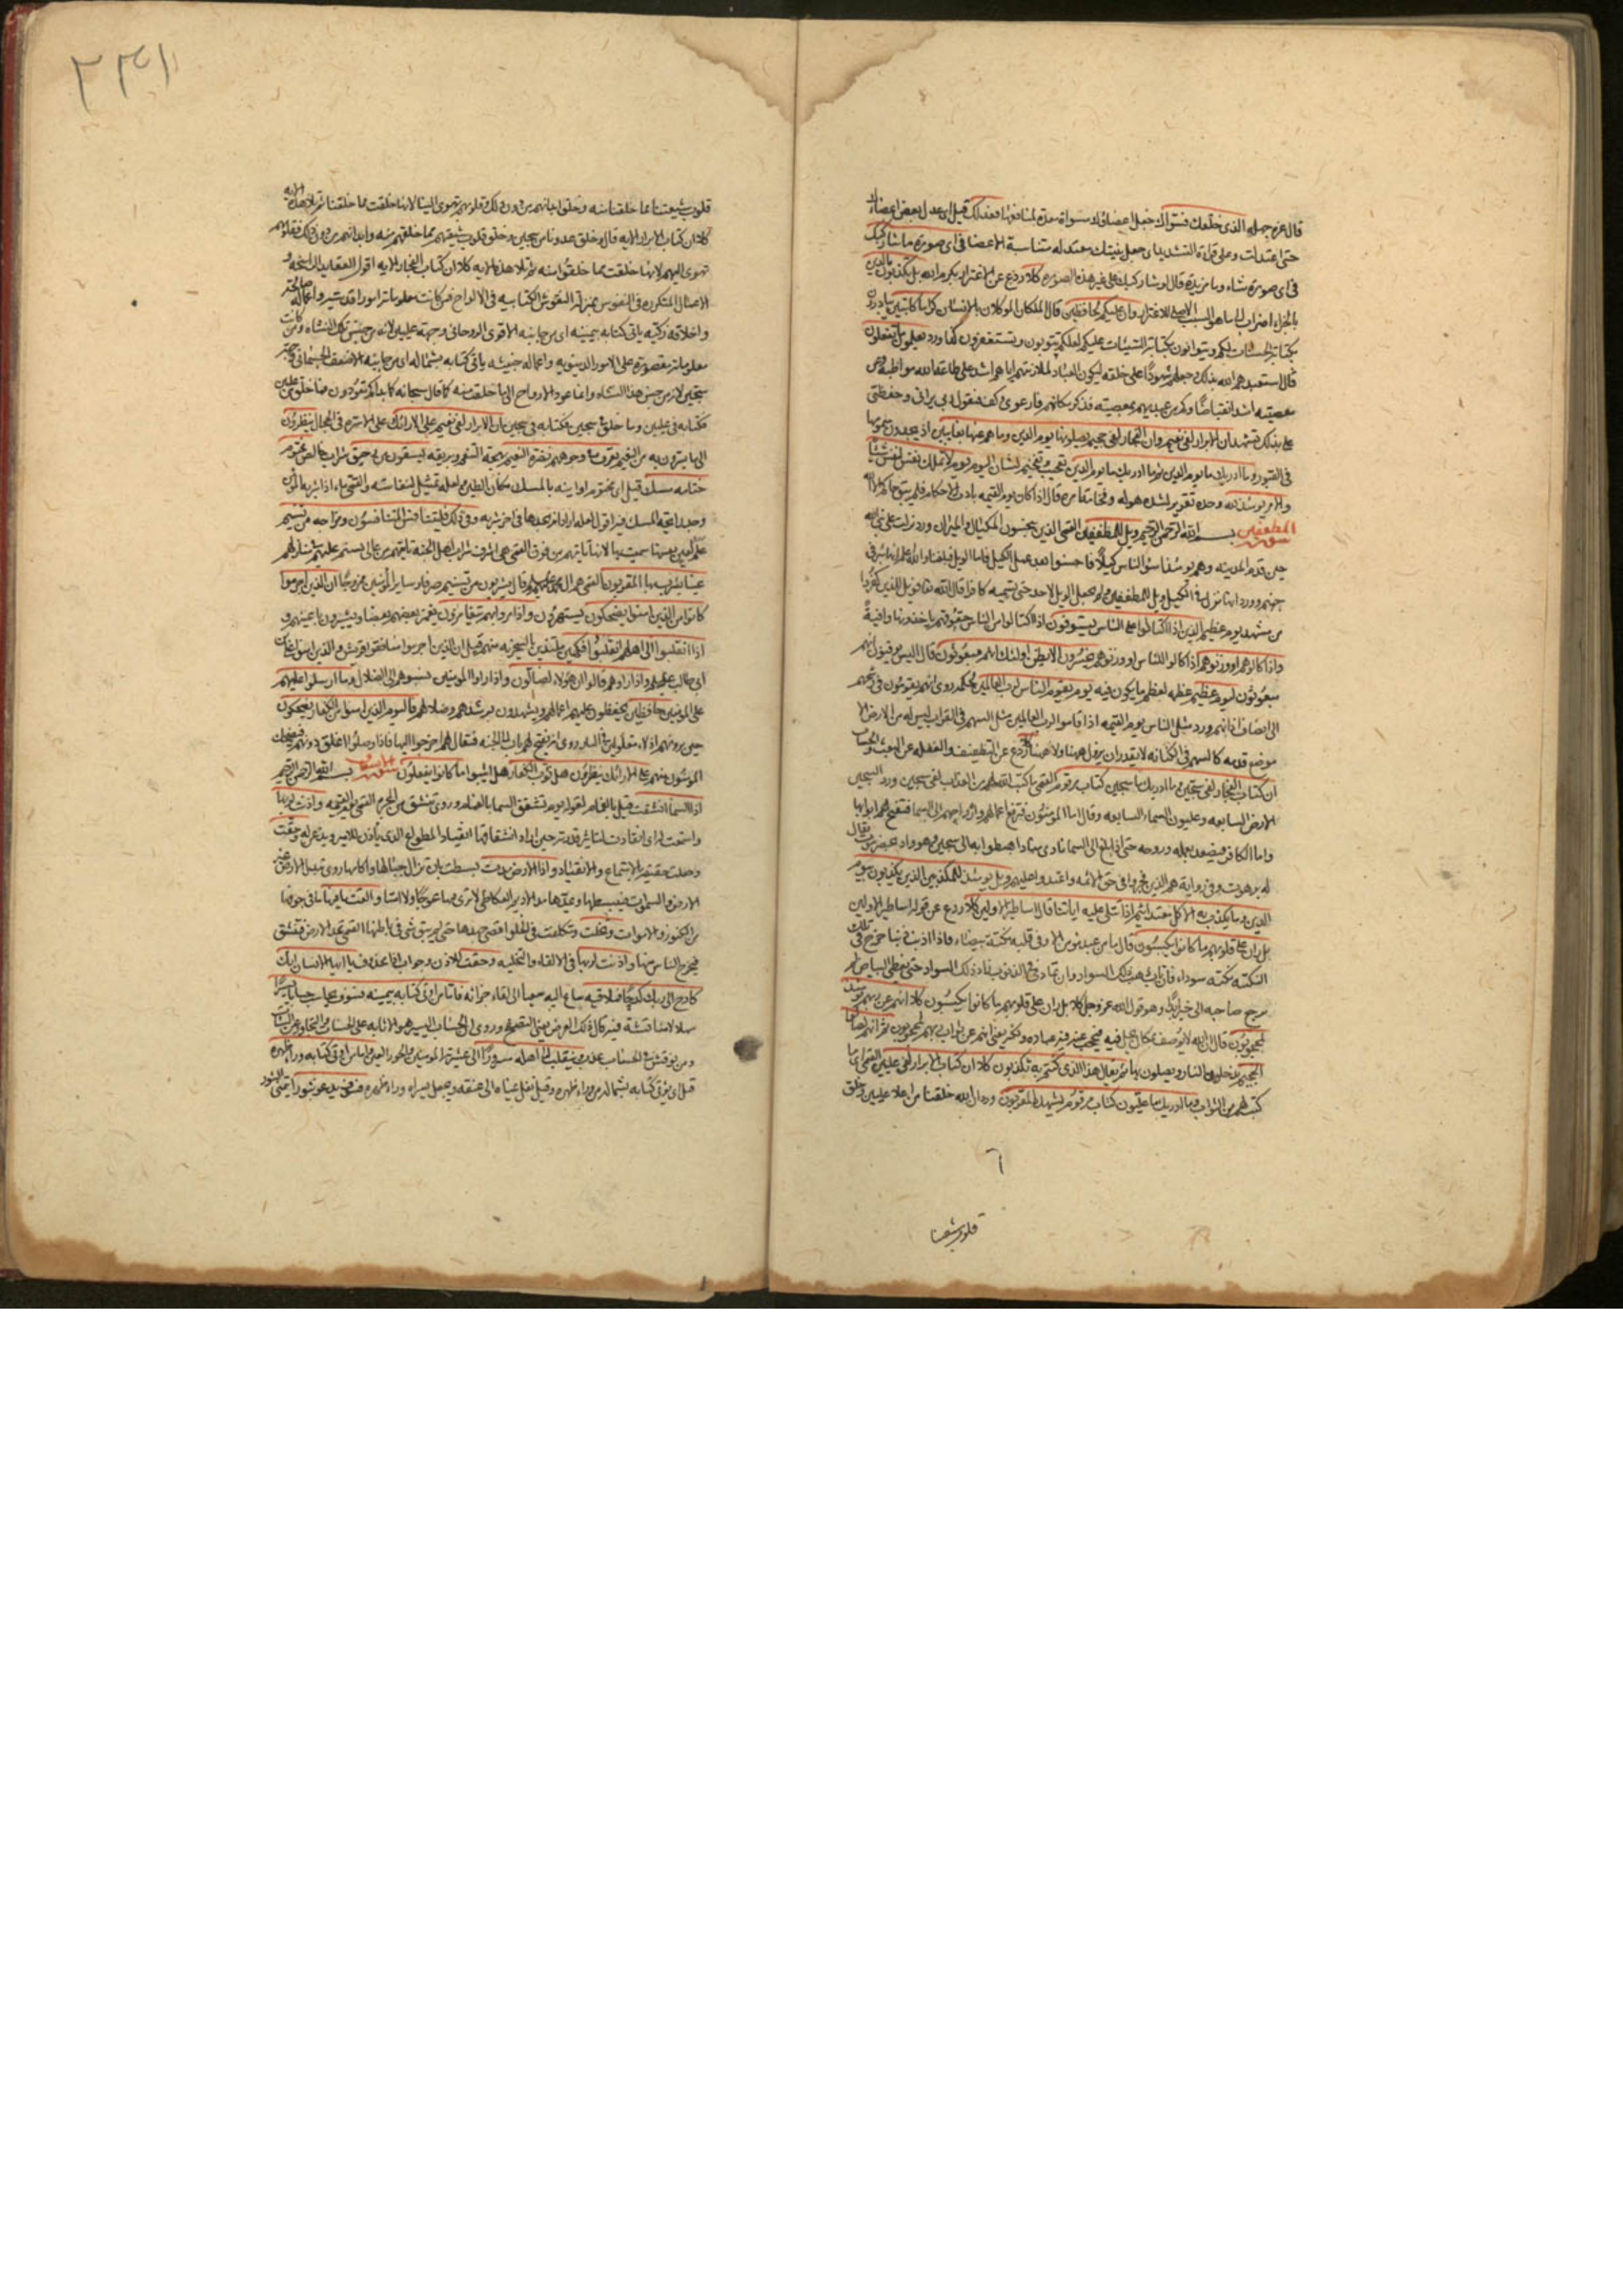 قال غره جهله الذى خلقك فسوّاك جعل اعضائك مسواة معدة لمنافعها فعدلك قيل اى عدل بعض اعضاءك
حتى اعتدلت وعلى قراءة التشديد اى جعل بنيتك معتدله متناسبة الاعضا فى اى صورة ما شاء ركبك
فى اى صورة شاء وما مزيدة قال لو شاء ركبك على غير هذه الصوره كلا ردع عن الاغترار بكرم الله بل تكذبون بالدين
بالجزاء اضراب الى ما هو السبب الاصلى للاغترار وان عليكم لحافظين قال الملكان الموكلان بالانسان كراما كاتبين يبادرون
بكتابة الحسنات لكم ويتوانون بكتابة السيئات عليكم لعلكم تتوبون وتستغفرون كما ورد يعلمون ما تفعلون
قال استعبدهم الله بذلك وجعلهم شهودًا على خلقه ليكون العباد لملازمتهم اياهم اشد على طاعة الله مواظبة وعن
معصيته اشد انقباضًا وكم من عبد يهم بمعصيته فذكر مكانهم فارعوى وكف فيقول ربى يرانى وحفظتى
على بذلك تشهد ان الابرار لفى نعيم وان الفجار لفى جحيم يصلونها يوم الدين وما هم عنها بغائبين اذ يجدون سمومها
فى القبور وما ادريك ما يوم الدين ثم ما ادريك ما يوم الدين تعجيب وتفخيم لشان اليوم يوم لا تملك نفس لنفس شيئا
والامر يومئذ لله وحده تقرير لشدة هوله وفخامة امره قال اذا كان يوم القيمه بادت الاحكام فلم يبق حاكم الا الله
سورة المطففين بسم الله الرحمن الرحيم ويل للمطففين القمى الذين يبخسون المكيال والميزان ورد نزلت على نبى الله
حين قدم المدينه وهم يومئذ اسوء الناس كيلًا فاحسنوا بعد عمل الكيل فاما الويل فبلغنا والله اعلم انها بئر فى
جهنم وورد انها نزل فى الكيل ويل للمطففين ولم يجعل الويل لاحد حتى يسميه كافرا قال الله تعالى فويل للذين كفروا
من مشهد يوم عظيم الذين اذا اكتالوا على الناس يستوفون اذا اكتالوا من الناس حقوقهم ياخذونها وافيةً
واذا كالوهم او وزنوهم اذا كالوا للناس او وزنوا لهم يخسرون الا يظن اولئك انهم مبعوثون قال اليس يوقنون انهم
مبعوثون ليوم عظيم عظمه لعظم ما يكون فيه يوم يقوم الناس لرب العالمين لحكمه روى انهم يقومون فى رشحهم
الى انصاف اذانهم وورد مثل الناس يوم القيمه اذا قاموا لرب العالمين مثل السهم فى القراب ليس له من الارض الا
موضع قدمه كالسهم فى الكنانه لا يقدر ان يزول ههنا ولا ههنا كلا ردع عن التطفيف والغفله عن البعث والحساب
ان كتاب الفجار لفى سجين وما ادريك ما سجين كتاب مرقوم القمى ما كتب الله لهم من العذاب لفى سجين وورد السجين
الارض السابعه وعليون السماء السابعه وقال اما المؤمنون فترفع اعمالهم وارواحهم الى السما فتفتح لهم ابوابها
واما الكافر فيصعد بعمله وروحه حتى اذا بلغ الى السما نادى مناد اهبطوا به الى سجين وهو واد بحضرموت يقال
له برهوت وفى رواية هم الذين فجروا فى حق الائمه واعتدوا عليهم ويل يومئذ للمكذبين الذين يكذبون بيوم
الدين وما يكذب به الا كل معتد اثيم اذا تتلى عليه اياتنا قال اساطير الاولين كلا ردع عن قوله اساطير الاولين
بل ران على قلوبهم ما كانوا يكسبون قال ما من عبد مؤمن الا وفى قلبه نكتة بيضاء فاذا اذنب ذنبا خرج فى تلك
النكته نكته سوداء فان تاب ذهب ذلك السواد وان تمادى فى الذنوب زاد ذلك السواد حتى يغطى البياض لم
يرجع صاحبه الى خير ابدًا وهو قول الله عز وجل كلا بل ران على قلوبهم ما كانوا يكسبون كلا انهم عن ربهم يومئذ
لمحجوبون قال ان الله لا يوصف بمكان يحل فيه فيحجب عنه فيه عباده ولكنه يعنى انهم عن ثواب ربهم لمحجوبون ثم انهم لصالوا
الجحيم يدخلون النار ويصلون بها ثم يقال هذا الذى كنتم به تكذبون كلا ان كتاب الابرار لفى عليين القمى اى ما
كتب لهم من الثواب وما ادريك ما عليّون كتاب مرقوم يشهده المقربون ورد ان الله خلقنا من اعلا عليين وخلق
٦
قلوب شيعتنا
٢٣١
قلوب شيعتنا مما خلقنا منه وخلق ابدانهم من دون ذلك وقلوبهم تهوى الينا لانها خلقت مما خلقنا ثم تلا هذه الايه
كلا ان كتاب الابرار الايه قال وخلق عدونا من سجين وخلق قلوب شيعتهم مما خلقهم منه وابدانهم من دون ذلك فقلوبهم
تهوى اليهم لانها خلقت مما خلقوا منه ثم تلا هذه الايه كلا ان كتاب الفجار الايه اقول العقايد الراسخه و
الاعمال المتكرره فى النفوس بمنزلة النقوش الكتابيه فى الالواح فمن كانت معلوماته امورا قدسيه واعماله صالحه
واخلاقه زكيه ياتى كتابه بيمينه اى من جانبه الاقوى الروحانى وجهة عليين لانه من جنس تلك النشاه ومن كانت
معلوماته مقصورة على الامور الدنيويه واعماله خبيثه ياتى كتابه بشماله اى من جانبه الاضعف الجسمانى وجهة
سجين لانه من جنس هذا النشاه وانما عود الارواح الى ما خلقت منه كما قال سبحانه كما بداكم تعودون فما خلق من عليين
فكتابه فى عليين وما خلق من سجين فكتابه فى سجين ان الابرار لفى نعيم على الارائك على الاسره فى الحجال ينظرون
الى ما يسرون به من النعيم تعرف فى وجوههم نضرة النعيم بهجة التنعم وبريقه يسقون من رحيق شراب خالص مختوم
ختامه مسك قيل اى مختوم اوانيه بالمسك مكان الطين ولعله تمثيل لنفاسته والقمى ماء اذا شربه المؤمن
وجد رائحة المسك فيه اقول لعله اراد انه يجدها فى اخر شربه وفى ذلك فليتنافس المتنافسون ومزاجه من تسنيم
علم لعين بعينها سميت بها لانها تاتيهم من فوق القمى هى اشرف شراب اهل الجنة تاتيهم من عال يسنم عليهم منازلهم
عينا يشرب بها المقربون القمى هم ال محمد عليهم قال يشربون من تسنيم صرفا وساير المؤمنين ممزوجًا ان الذين اجرموا
كانوا من الذين امنوا يضحكون يستهزؤن واذا مروا بهم يتغامزون يغمز بعضهم بعضا ويشيرون باعينهم و
اذا انقلبوا الى اهلهم انقلبوا فكهين ملتذين بالسخريه منهم قيل ان الذين اجرموا منافقوا قريش والذين امنوا على بن
ابى طالب عليه واذا راوهم قالوا ان هؤلاء لضالون واذا راوا المؤمنين نسبوهم الى الضلال وما ارسلوا عليهم
على المؤمنين حافظين يحفظون عليهم اعمالهم ويشهدون برشدهم وضلالهم فاليوم الذين امنوا من الكفار يضحكون
حين يرونهم اذلاء مغلولين فى النار روى انه يفتح لهم باب الى الجنه فيقال لهم اخرجوا اليها فاذا وصلوا اغلق دونهم فيضحك
المؤمنون منهم على الارائك ينظرون هل ثوب الكفار هل اثيبوا ما كانوا يفعلون بسم الله الرحمن الرحيم
اذا السماء انشقت قيل بالغمام لقوله يوم تشقق السماء بالغمام وروى تنشق من المجره القمى يوم القيمه واذنت لربها
واستمعت له اى انقادت لتاثير قدرته حين اراد انشقاقها انقياد المطواع الذى ياذن للامير ويذعن له وحقت
وجعلت حقيقة بالاستماع والانقياد واذا الارض مدت بسطت بان تزال جبالها واكامها روى تبدل الارض غير
الارض والسموات فيبسطها ويمدها مد الاديم العكاظى لا ترى فيها عوجًا ولا امتا والقت ما فيها ما فى جوفها
من الكنوز والاموات وتخلت وتكلفت فى الخلو اقصى جهدها حتى لم يبق شى فى باطنها القمى تمد الارض فتنشق
فيخرج الناس منها واذنت لربها فى الالقاء والتخليه وحقت للاذن وجواب اذا محذوف يا ايها الانسان انك
كادح الى ربك كدحًا فملاقيه ساع اليه سعيا الى لقاء جزائه فاما من اوتى كتابه بيمينه فسوف يحاسب حسابا يسيرًا
سهلا لا مناقشة فيه قال ذلك العرض يعنى التصفح وروى ان الحساب اليسير هو الاثابه على الحسنات والتجاوز عن السيئات
ومن نوقش فى الحساب عذب وينقلب الى اهله مسرورًا الى عشيرته المؤمنين والحور العين واما من اوتى كتابه وراء ظهره
قيل اى يؤتى كتابه بشماله من وراء ظهره وقيل تغل يمناه الى عنقه ويجعل يسراه وراء ظهره فسوف يدعو ثبورا يتمنى الثبور